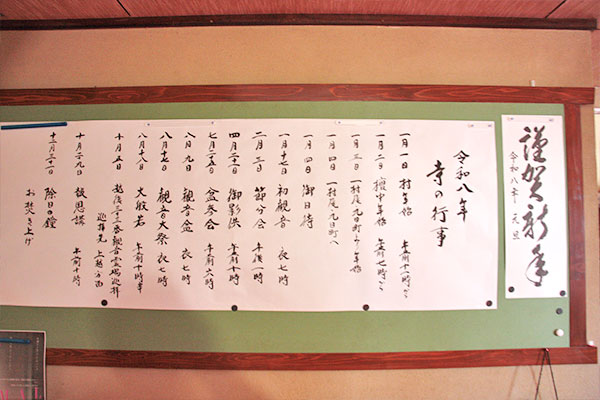 謹賀新年
令和八年 元旦
令和八年
寺の行事
一月一日 村年始 午前十一時から
一月二日 檀中年始 午前七時から
一月三日 一村尾、九日町より年始
一月四日 一村尾、九日町へ
一月四日 御日待
一月十七日 初観音 夜七時
二月三日 節分会 午後一時
四月二十一日 御影供 午前十時
七月二十五日 盆参会 午前六時
八月九日 観音盆 夜七時
八月十七日 観音大祭 夜七時
八月十八日 大般若 午前十時半
十月五日 越後三十三番観音霊場巡拝
巡拝先 上越方面
十月二十九日 報恩講 午前十時
十二月三十一日 除日の鐘
お焚き上げ